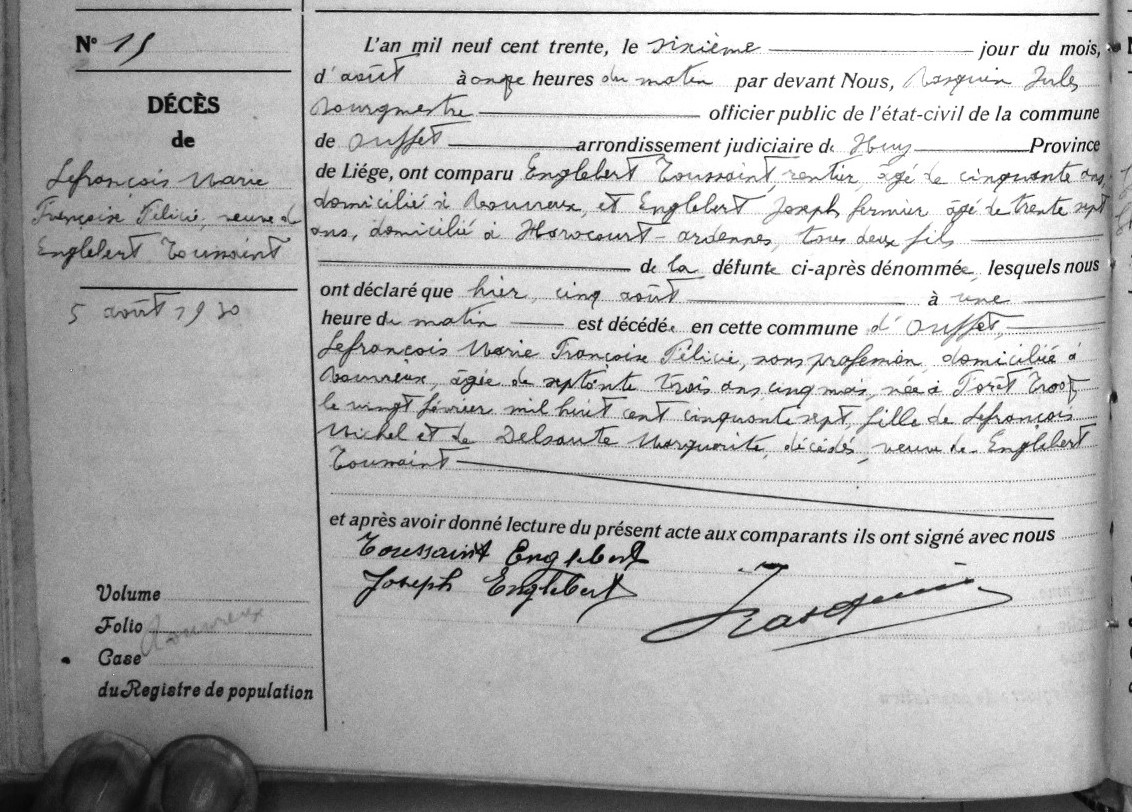 N° 15
DÉCÈS
de
Lefrancois Marie
Françoise Félicie, veuve de
Englebert Toussaint
5 août 1930
Volume
Folio
Rouvreux
Case
du Registre de population
L'an mil neuf cent trente, le sixième jour du mois,
d'août à onze heures du matin par devant Nous, Rasquin Jules
Bourgmestre officier public de l'état-civil de la commune
de Ouffet arrondissement judiciaire de Huy Province
de Liége, ont comparu Englebert Toussaint, rentier, âgé de cinquante ans,
domicilié à Rouvreux, et Englebert Joseph fermier âgé de trente sept
ans, domicilié à ardennes, tous deux fils
de la défunte ci-après dénommée, lesquels nous
ont déclaré que hier, cinq août à une
heure du matin est décédée en cette commune d'Ouffet,
Lefrancois Marie Françoise Félicie, sans profession, domiciliée à
Rouvreux, âgée de septante trois ans cinq mois, née à Forêt Trooz
le vingt février mil huit cent cinquante sept, fille de Lefrancois
Michel et de Delsaute Marguerite, décédés, veuve de Englebert
Toussaint
et après avoir donné lecture du présent acte aux comparants ils ont signé avec nous
Toussaint Englebert
Joseph Englebert
JRasquin